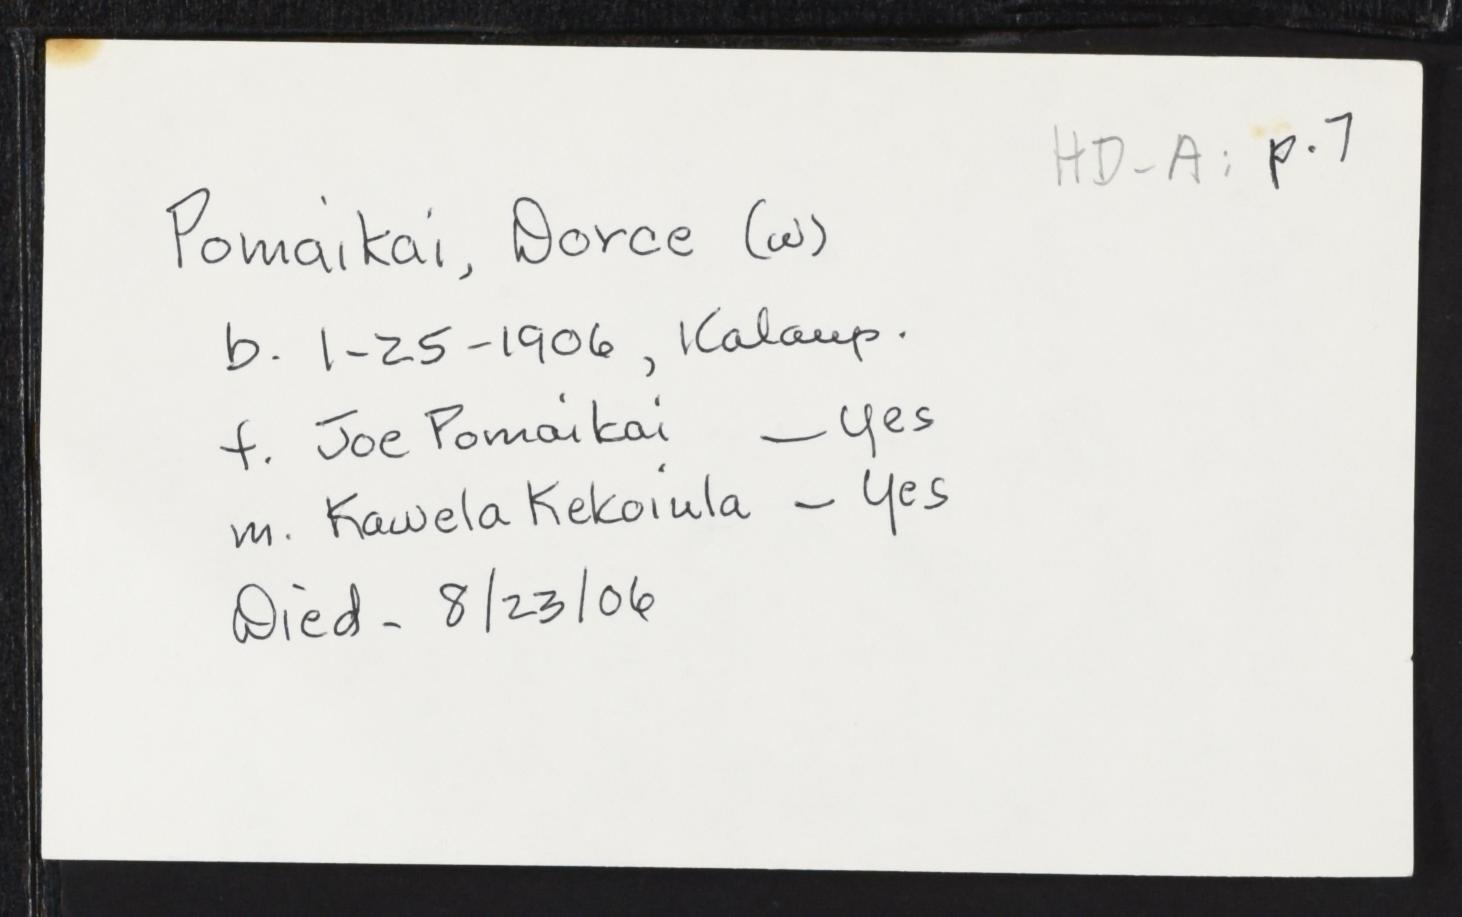 HD-A; p.7
Pomaikai, Dorce (w)
b. 1-25-1906, Kalaup.
f. Joe Pomaikai — Yes
m. Kawela Kekoiula — Yes
Died - 8/23/06